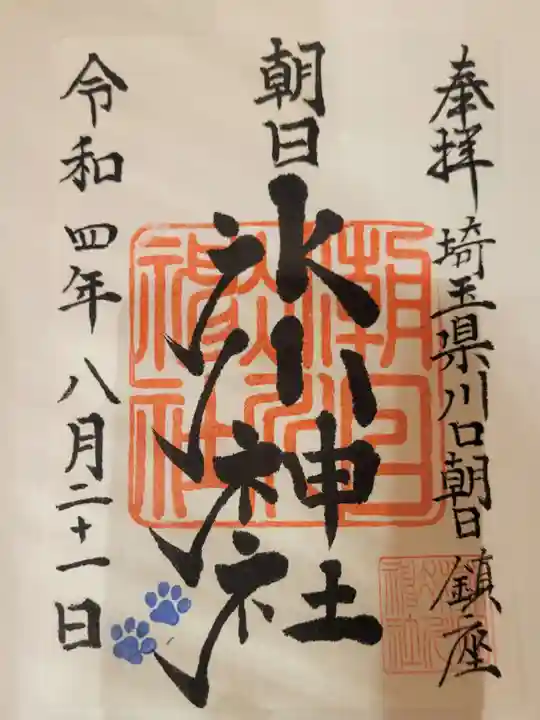 奉拝 埼玉県川口朝日鎮座
朝日
氷川神社
令和四年八月二十一日